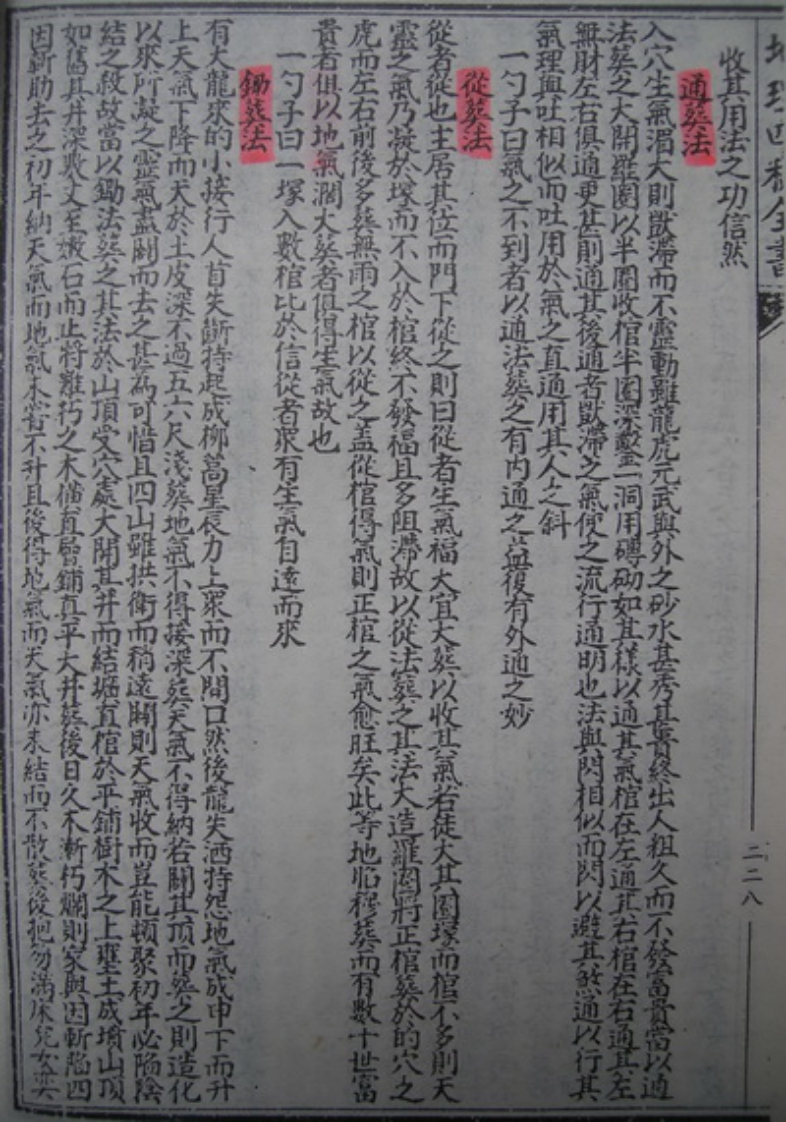 地理四秘全書
二二八
收其用法之功信然
通葬法
入穴生氣湄大則獃滯而不靈動雖龍虎元武與外之砂水甚秀其實終出人粗久而不發富貴當以通
法葬之大開羅圈以半圈收棺半圈深鑿一洞用磚砌如其樣以通其氣棺在左通其右棺在右通其左
無財左右俱通更甚則通其後通者獃滯之氣使之流行通明也法與閃相似而閃以避其煞通以行其
氣理與吐相似而吐用於氣之直通用其人之斜
一勺子曰氣之不到者以通法葬之有内通之益無復有外通之妙
從葬法
從者從也主居其位而門下從之則曰從者生氣福大宜大葬以收其氣若徒大其圈塚而棺不多則天
靈之氣乃凝於塚而不入於棺終不發福且多阻滯故以從法葬之其法大造羅圈將正棺葬於的穴之
虎而左右前後多葬無雨之棺以從之蓋從棺得氣則正棺之氣愈旺矣此等地貽穆葬而有數十世富
貴者俱以地氣濶大葬者俱得生氣故也
一勺子曰一塚入數棺比於信從者衆有生氣自遠而來
鋤葬法
有大龍來的小接行人首失斷持起成柳蒿星長力上衆而不間口然後龍失洒持怨地氣成申下而升
上天氣下降而天於土皮深不過五六尺淺葬地氣不得接深葬天氣不得納若關其頂而葬之則造化
以來所凝之靈氣盡闢而去之甚為可惜且四山雖拱衛而稍遠闢則天氣收而豈能頓聚初年必陥陰
結之殺故當以鋤法葬之其法於山頂受穴處大開其井而結壙直棺於平鋪樹木之上壅土成墳山頂
如舊其井深數丈至嫩石而止將難朽之木橫直層鋪真平大井葬後日久木漸朽爛則冢與因斬陷四
因斬助去之初年納天氣而地氣未嘗不升且後得地氣而天氣亦未結而不散葬後把笏滿床兒女奕